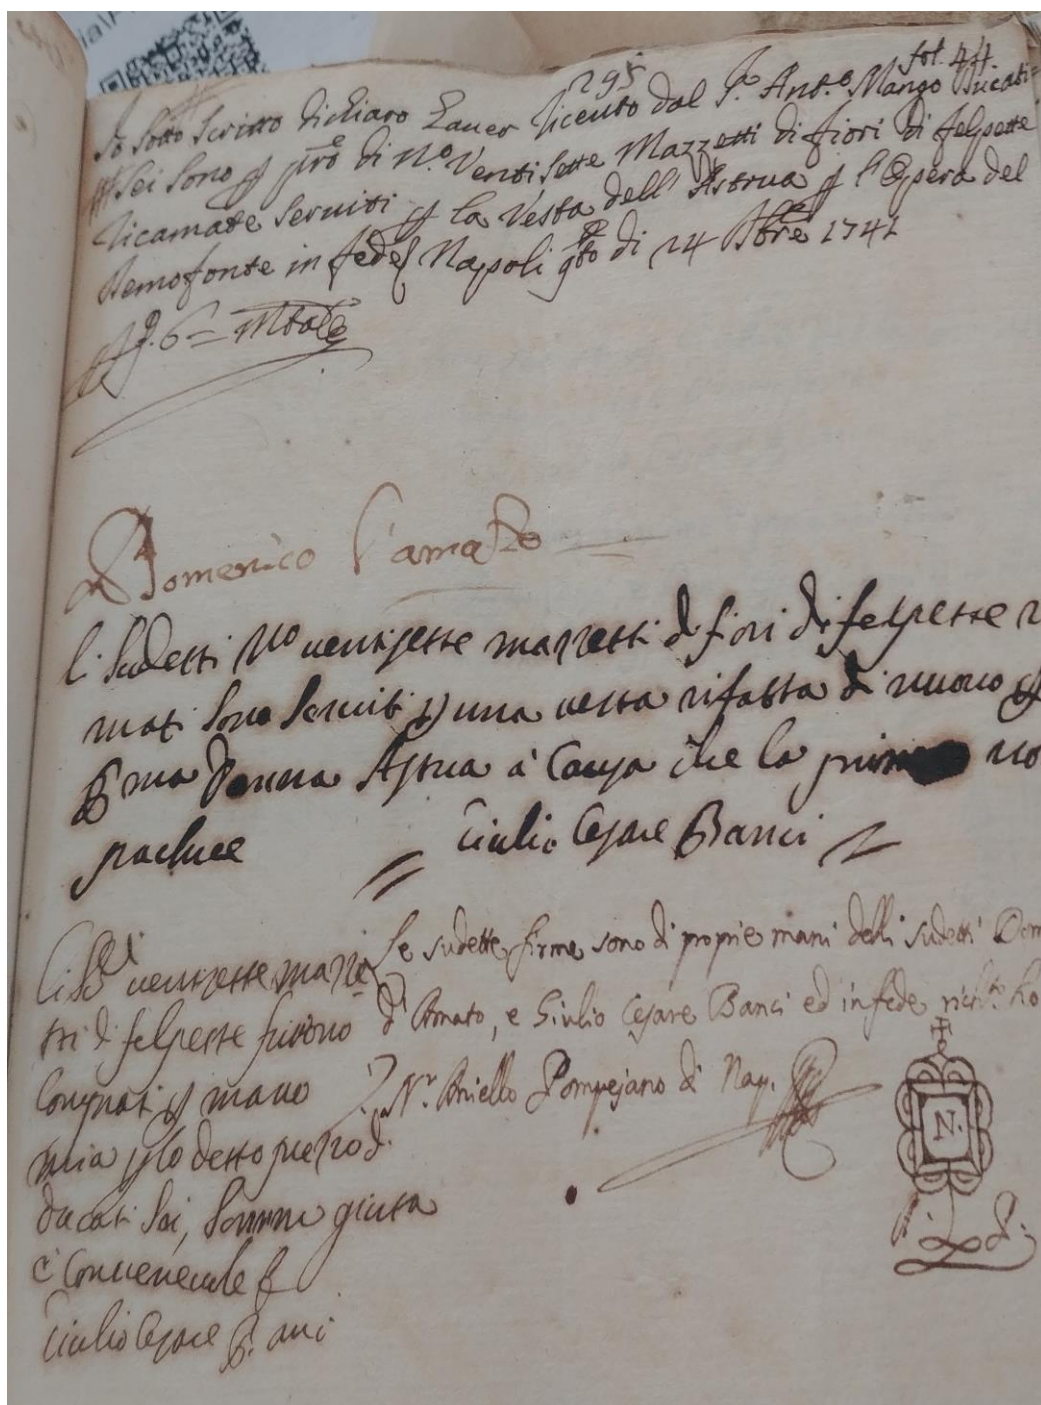 295
fol. 44.
Io sotto scritto dichiaro haver ricevuto dal S.r Ant.o Mango Ducati
sei sono p prezzo di N.o Venti sette Mazzetti di fiori di felpette
ricamate serviti p la Vesta dell'Astrua p l'Opera del
Demofonte in fede Napoli q.to di 24 1741
D. 6 =
Domenico d'amato
li sudetti No ventisette mazzetti di fiori di felpette
mati sono serviti p una vesta rifatta di nuovo p
ma Donna Astrua à causa che la prima no
piacque Giulio Cesare Banci
Li sud.i ventisette mazze
tti di felpette furono
Consignati p mano
mia p lo detto prezzo di
ducati sei, somma giusta
e convenevole
Giulio Cesare Banci
Le sudette firme sono di proprie mani delli sudetti Dom
d'Amato, e Giulio Cesare Banci ed in fede rich.to ho
N.r Aniello Pompejano di Nap.
N.